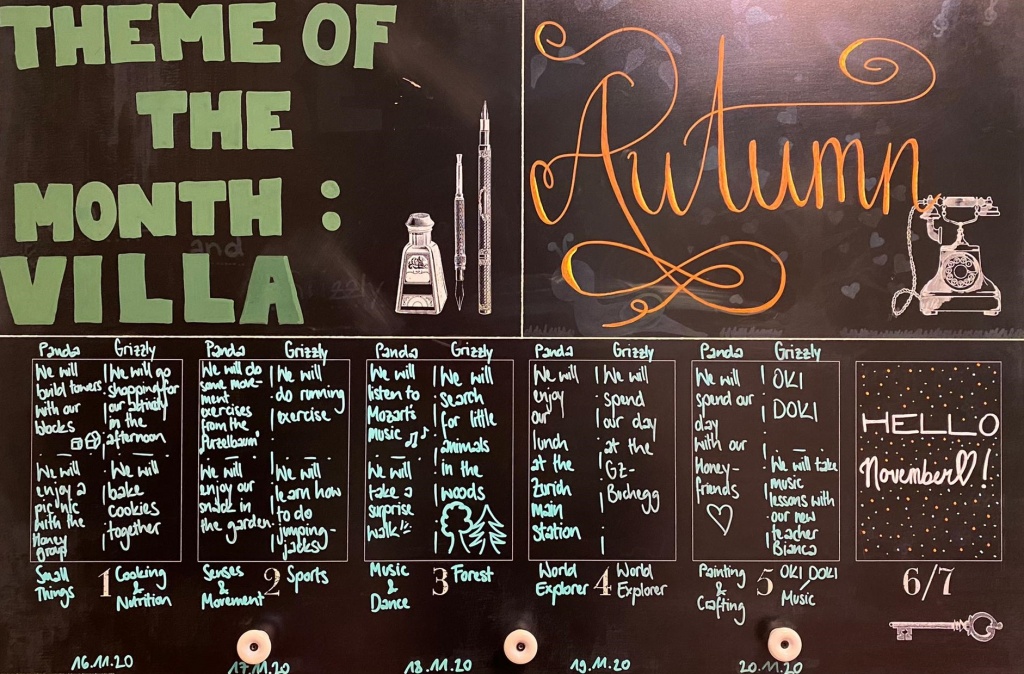 THEME OF
THE
MONTH :
VILLA
and
Autumn
Panda
We will
build towers
with our
blocks
We will
enjoy a
picnic
with the
Honey
group
Small
Things
Grizzly
We will go
shopping for
our activity
in the
afternoon
We will
bake
cookies
together
Cooking
&
Nutrition
1
16.11.20
Panda
We will do
some move-
ment
exercises
from the
"Purzelbaum"
We will
enjoy our
snack in
the garden
Senses
&
Movement
Grizzly
We will
do running
exercise
We will
learn how
to do
jumping-
jacks
Sports
2
17.11.20
Panda
We will
listen to
Mozarts
music
We will
take a
surprise
walk!!
Music
&
Dance
Grizzly
We will
search
for little
animals
in the
woods
Forest
3
18.11.20
Panda
We will
enjoy
our
lunch
at the
Zurich
main
station
World
Explorer
Grizzly
We will
spend
our day
at the
GZ-
Buchegg
World
Explorer
4
19.11.20
Panda
We will
spend our
day
with our
Honey-
friends
Painting
&
Crafting
Grizzly
OKI
DOKI
We will take
music
lessons with
our new
teacher
Bianca
OKI DOKI
Music
5
20.11.20
HELLO
November!
6/7